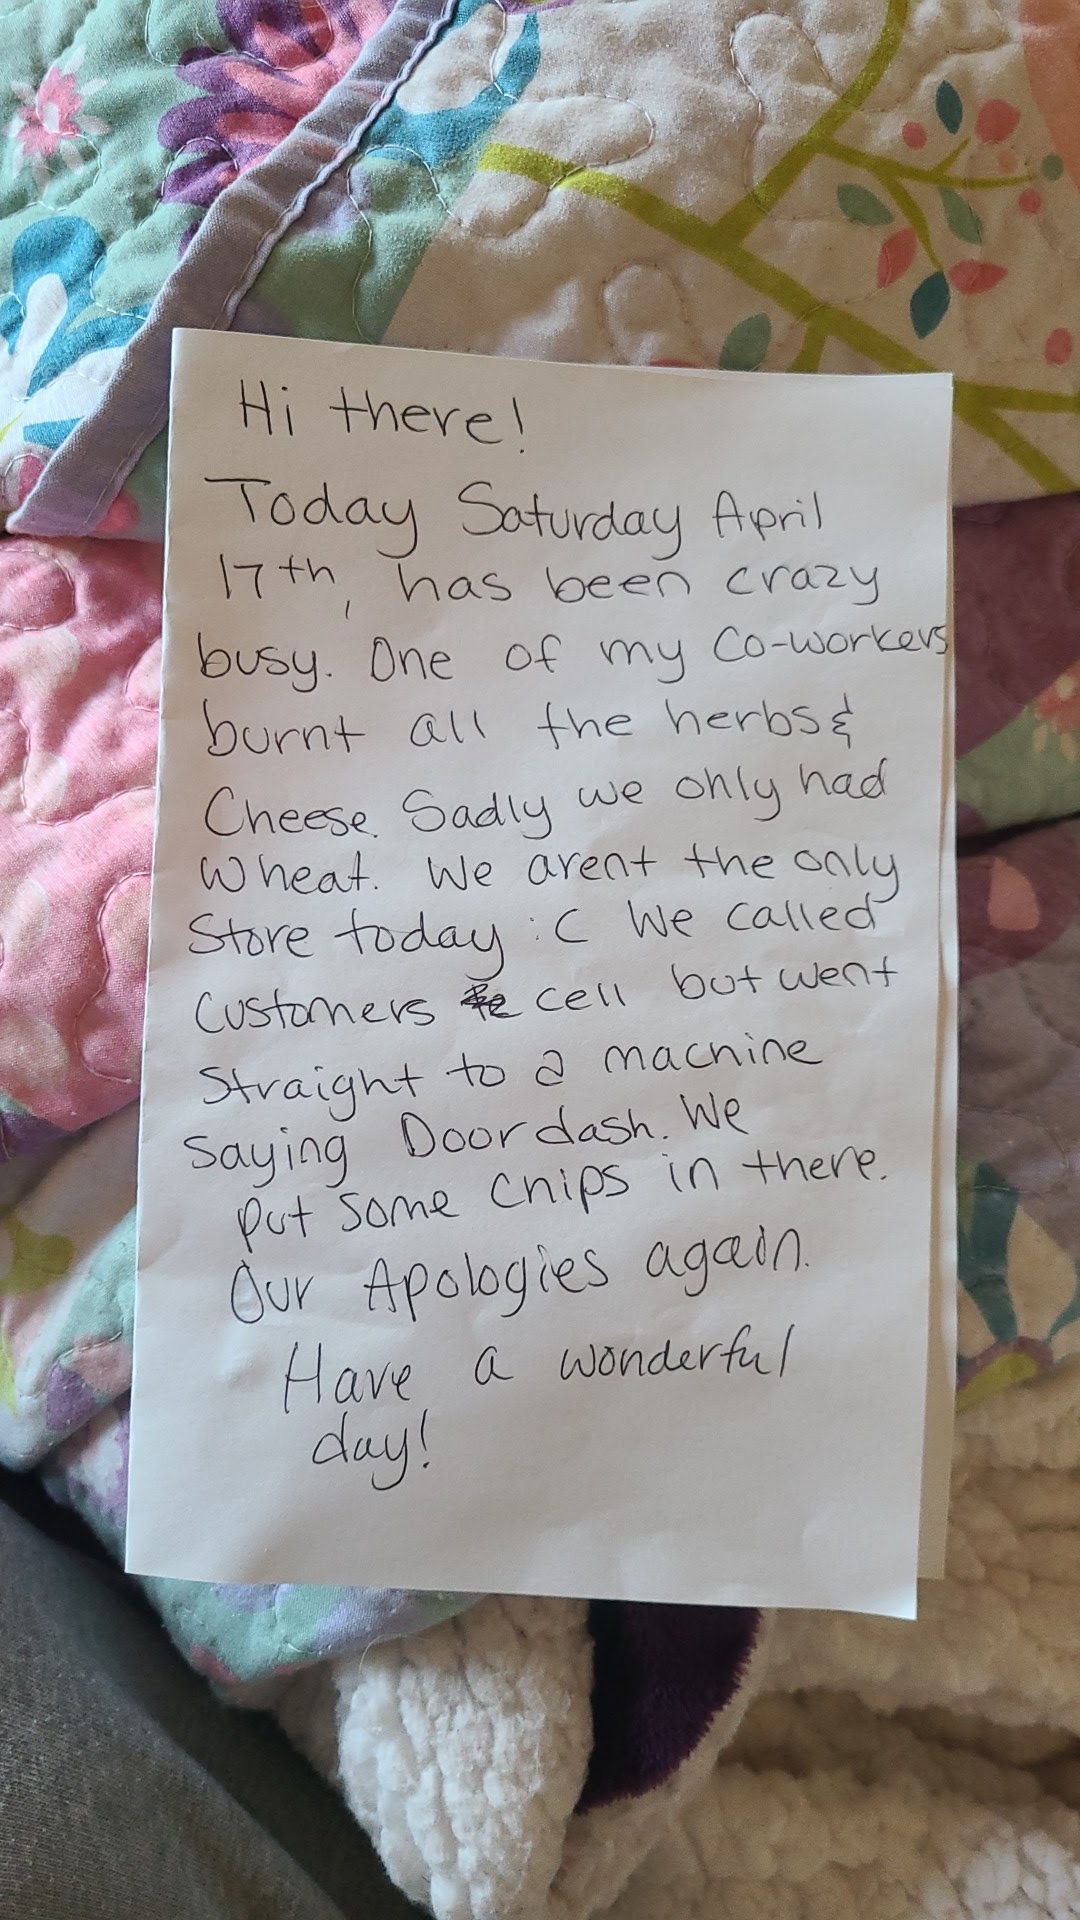 Hi there!
Today Saturday April
17th, has been crazy
busy. One of my Co-workers
burnt all the herbs &
Cheese. Sadly we only had
Wheat. We arent the only
Store today :C We called
Customers cell but went
Straight to a machine
Saying Doordash. We
put some chips in there.
Our Apologies again.
Have a wonderful
day!